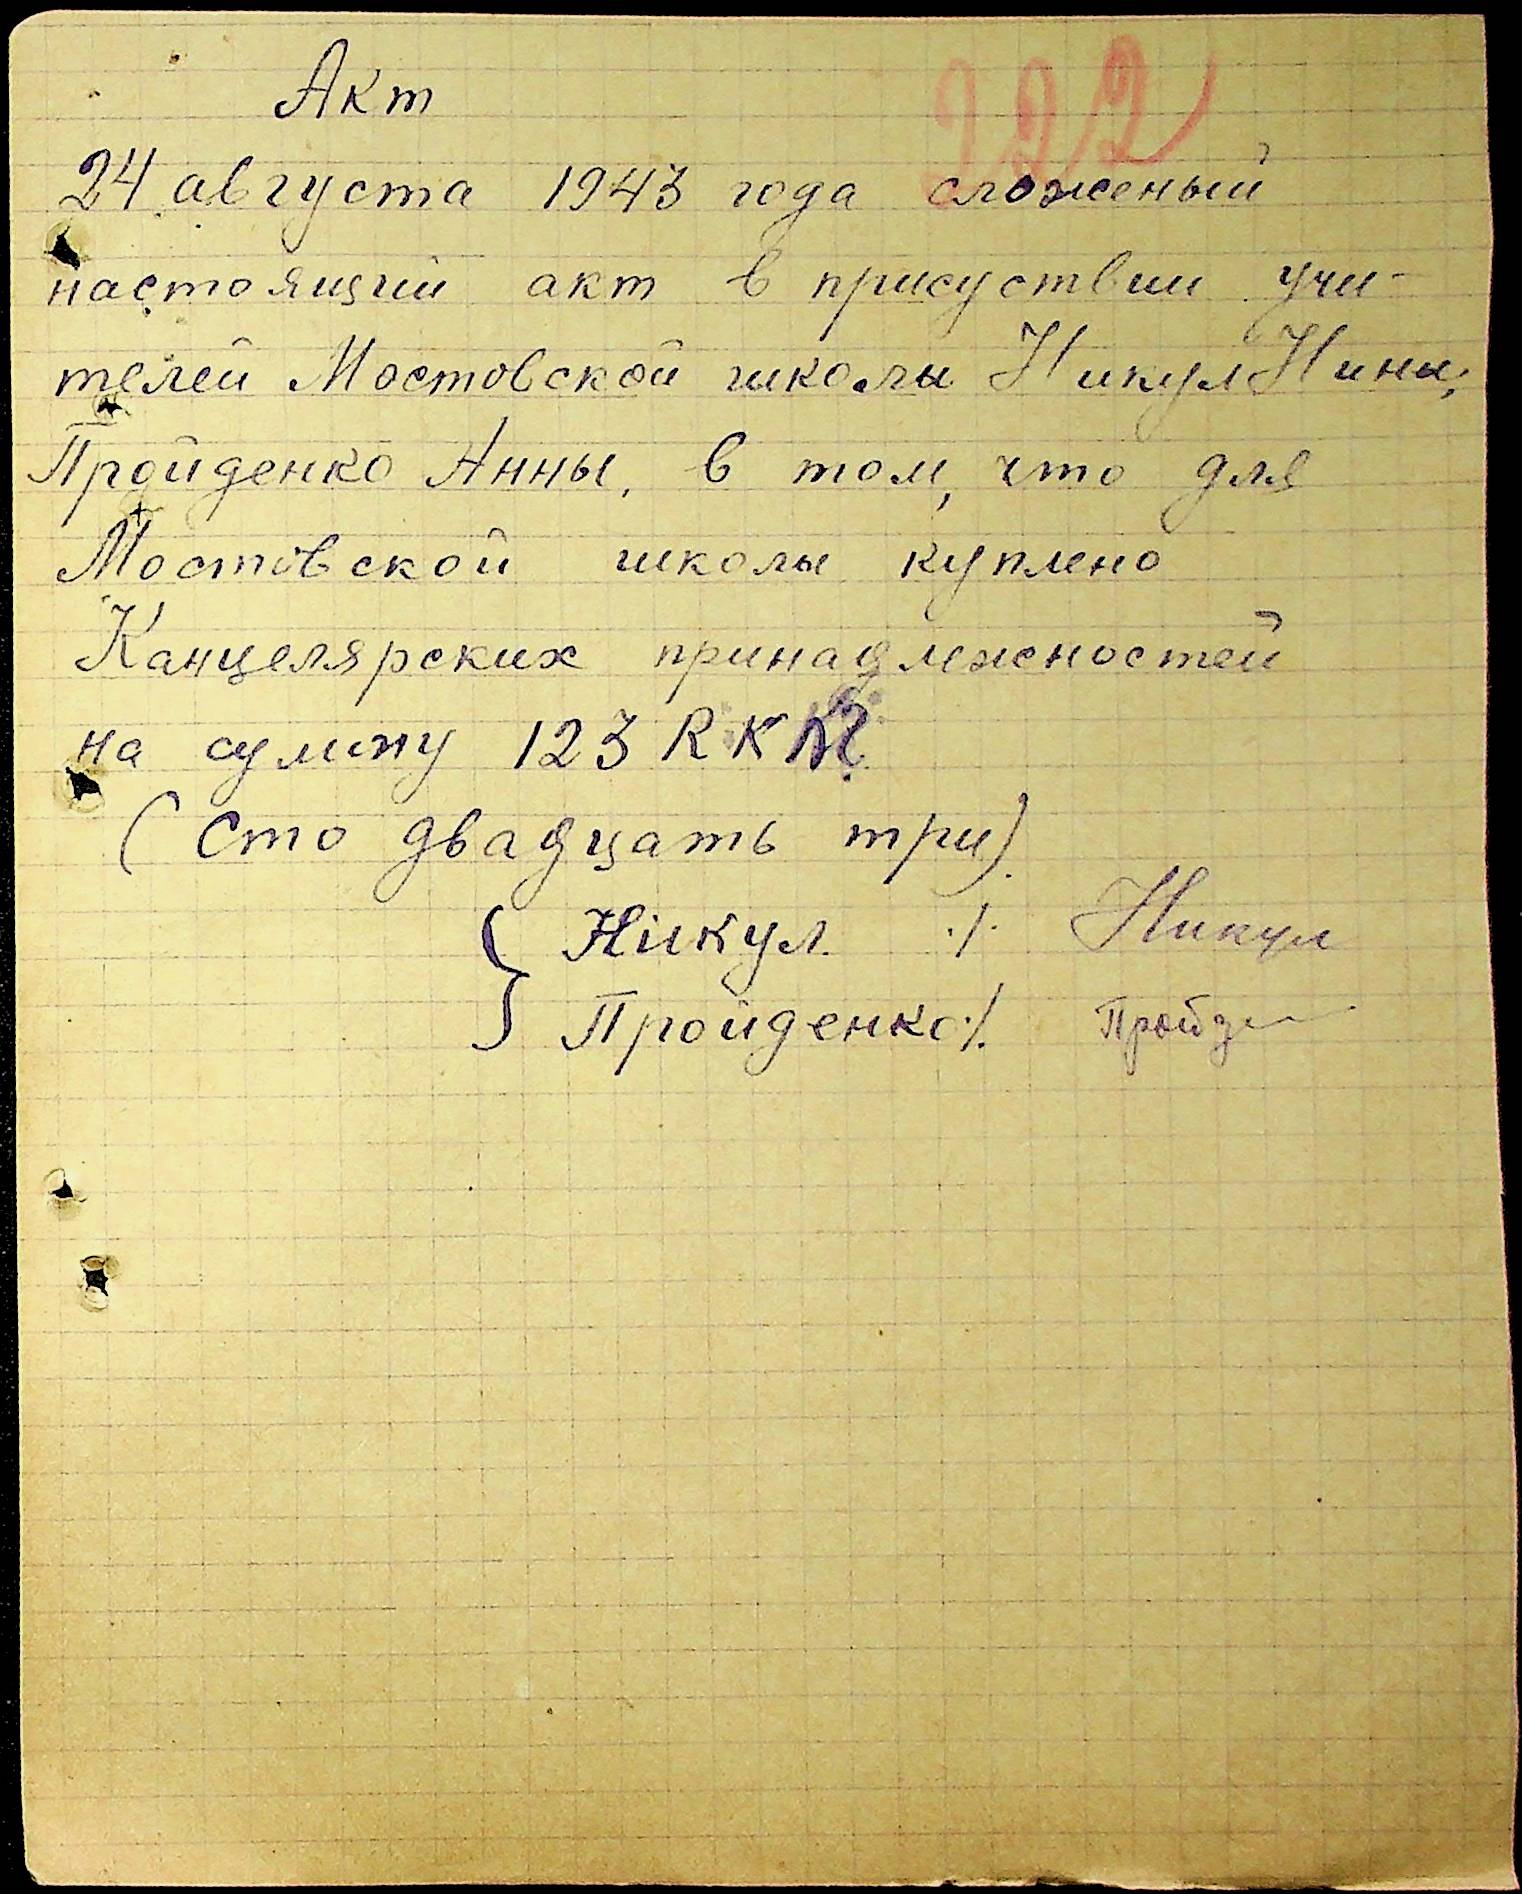 222
Акт
24 августа 1943 года сложеный
настоящий акт в присуствии учи-
телей Мостовской школы Никул Нины,
Пройденко Анны, в том, что для
Мостовской школы куплено
Канцелярских принадлежностей
на сумму 123 RKM
(Сто двадцать три).
Никул ./. Никул
Пройденко ./. Пройд